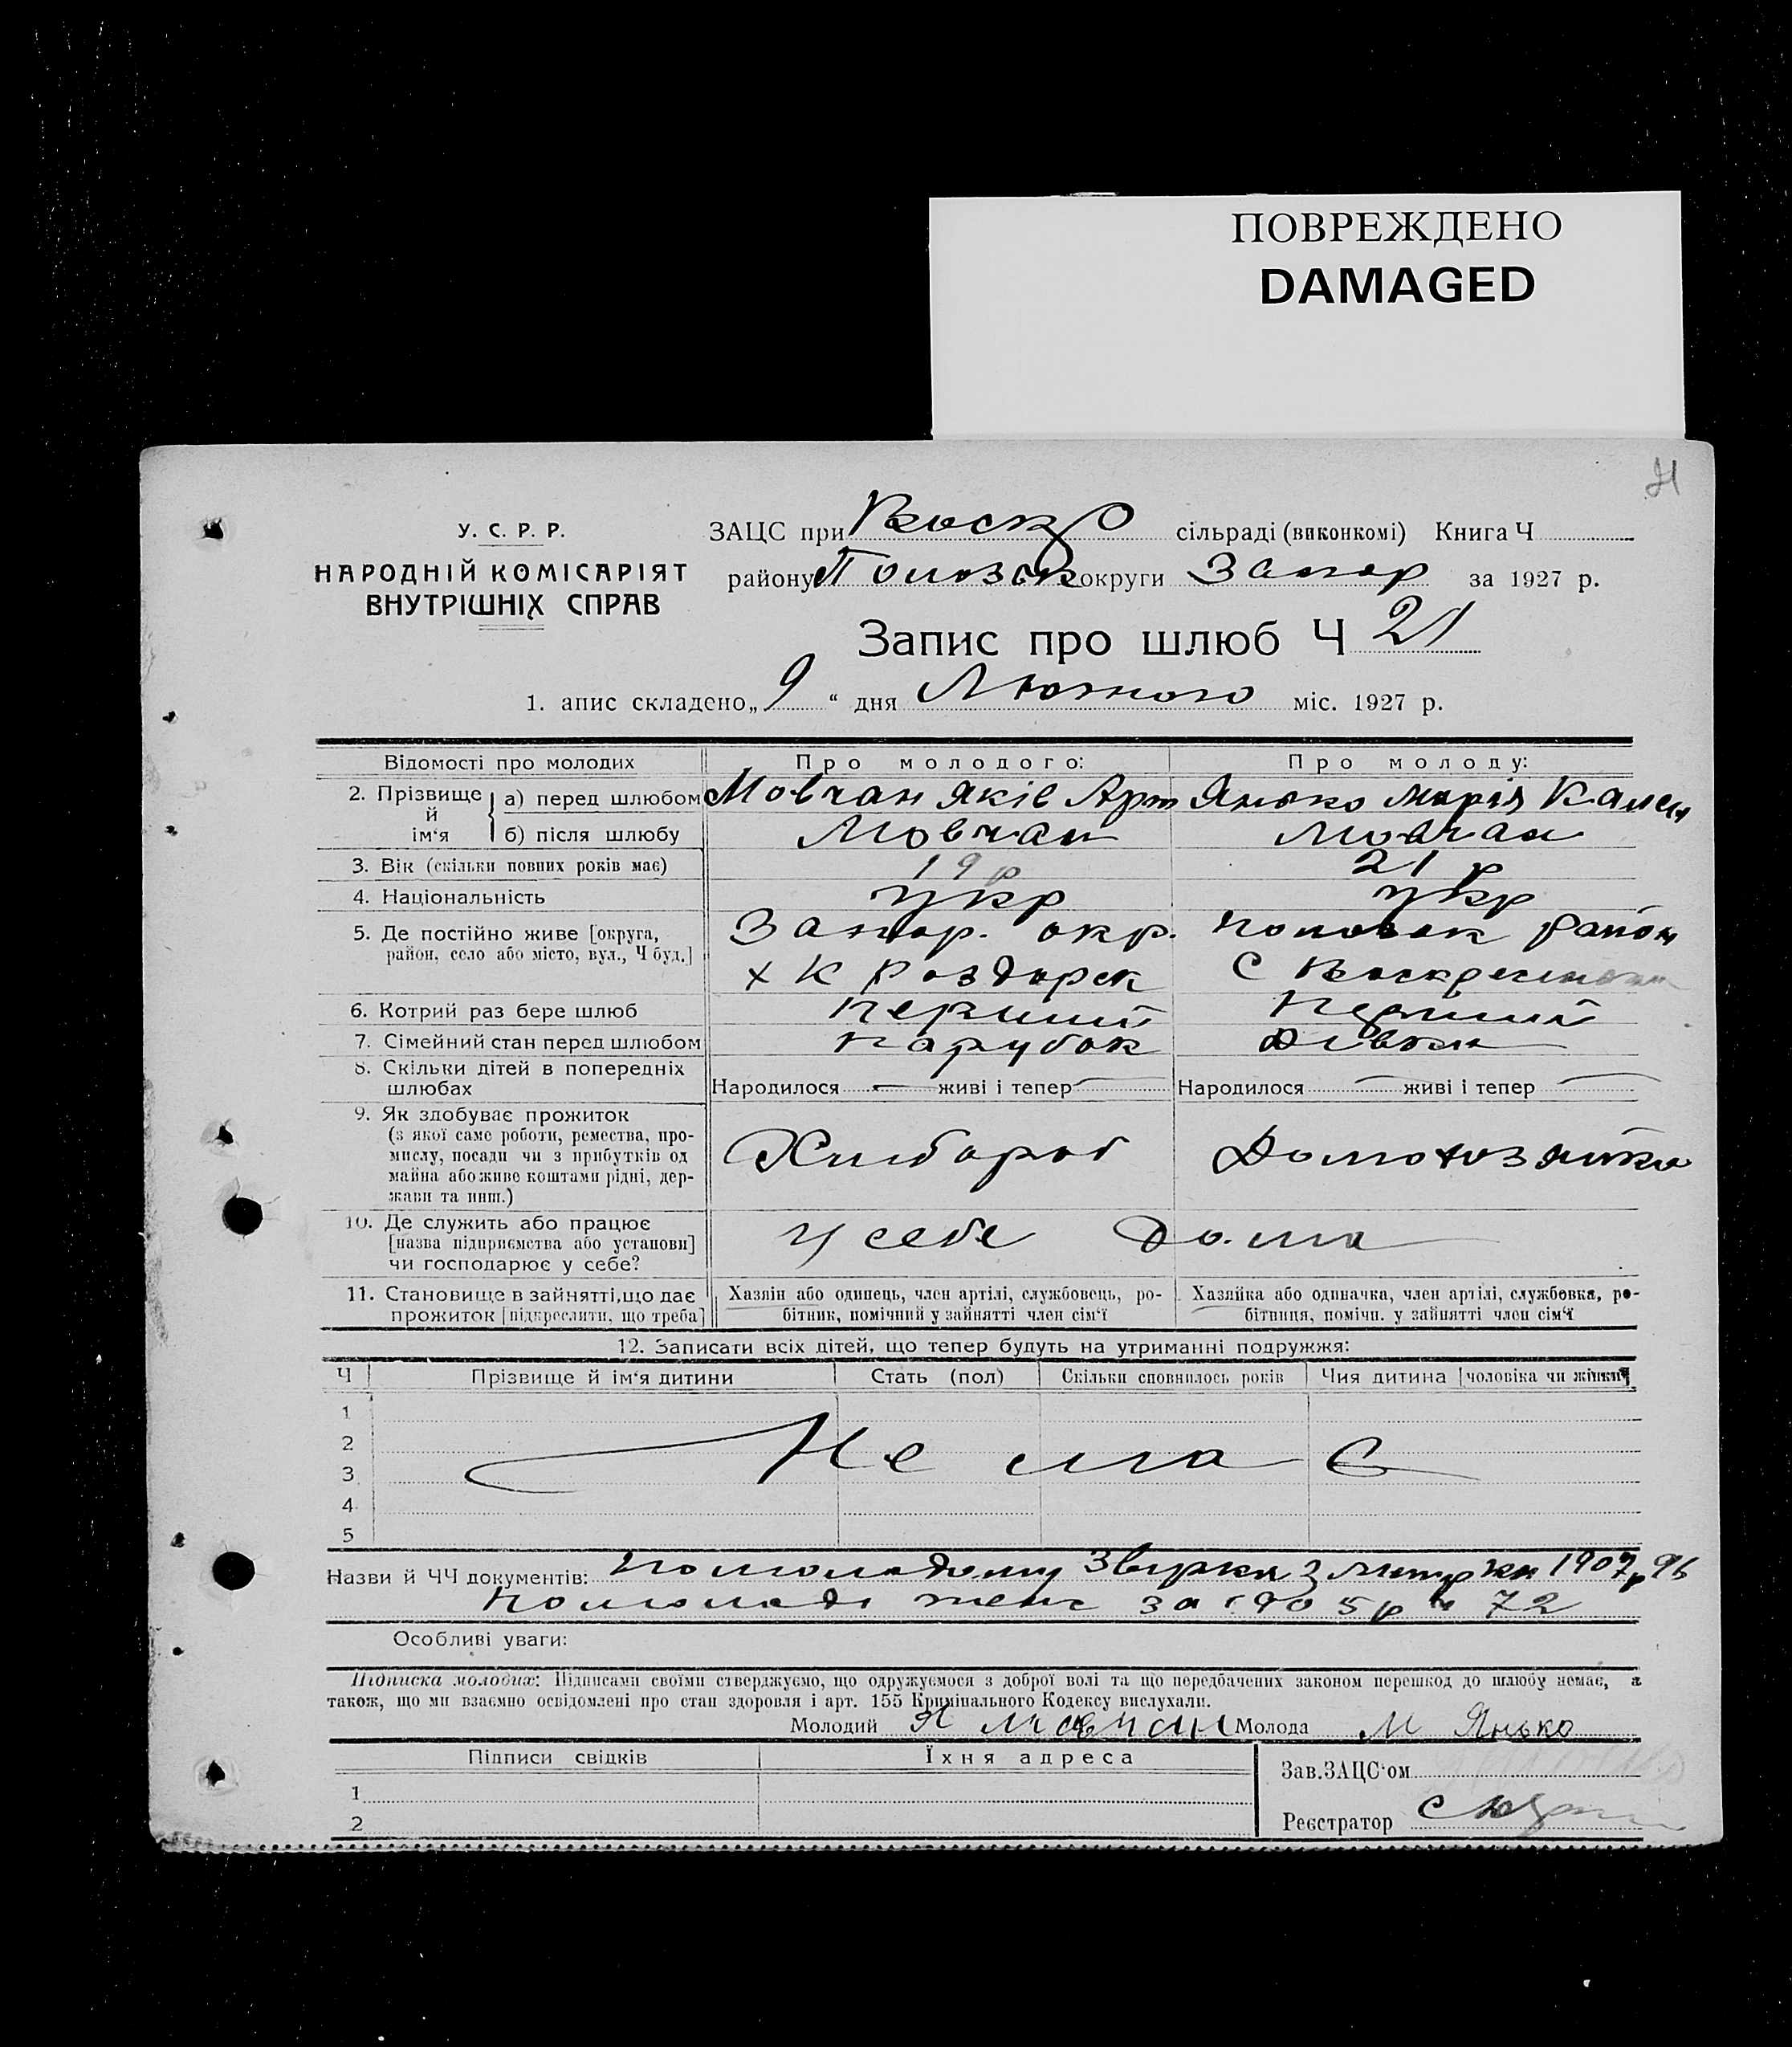 ПОВРЕЖДЕНО
DAMAGED
21
У. С. Р. Р.
НАРОДНІЙ КОМІСАРІЯТ
ВНУТРІШНІХ СПРАВ
ЗАЦС при Воскр сільраді (виконкомі) Книга Ч
району Пологськ округи Запор за 1927 р.
Запис про шлюб Ч 21
1. апис складено „ 9 “ дня Лютого міс. 1927 р.
Відомості про молодих Про молодого: Про молоду:
2. Прізвище й ім‘я а) перед шлюбом Мовчан Яків Арт Янько Марія Камен
б) після шлюбу Мовчан Мовчан
3. Вік (скільки повних років має) 19 р 21 р
4. Національність укр укр
5. Де постійно живе [округа, Запор. окр. район
район, село або місто, вул., Ч буд.] х К Роздорск С
6. Котрий раз бере шлюб Перший Перший
7. Сімейний стан перед шлюбом Парубок Дівка
8. Скільки дітей в попередніх
шлюбах Народилося — живі і тепер — Народилося — живі і тепер —
9. Як здобуває прожиток
(з якої саме роботи, ремества, про-
мислу, посади чи з прибутків од
майна або живе коштами рідні, дер-
жави та инш.)
Хлібороб Домохозяйка
10. Де служить або працює
[назва підприємства або установи]
чи господарює у себе?
у себе дома
11. Становище в зайнятті, що дає
прожиток [підкреслити, що треба]
Хазяїн або одинець, член артілі, службовець, ро-
бітник, помічний у зайнятті член сім‘ї
Хазяйка або одиначка, член артілі, службовка, ро-
бітниця, помічн. у зайнятті член сім‘ї
12. Записати всіх дітей, що тепер будуть на утриманні подружжя:
Ч Прізвище й ім‘я дитини Стать (пол) Скільки сповнилось років Чия дитина [чоловіка чи жінки]
1
2
Не ма є
3
4
5
Назви й ЧЧ документів: по молодому 1907 р 96
по молоді за 1905 р 72
Особливі уваги:
Підписка молодих: Підписами своїми стверджуємо, що одружуємося з доброї волі та що передбачених законом перешкод до шлюбу немає, а
також, що ми взаємно освідомлені про стан здоровля і арт. 155 Кримінального Кодексу вислухали.
Молодий Я Мовчан Молода М Янько
Підписи свідків Їхня адреса
Зав.ЗАЦС‘ом
1
2
Реєстратор